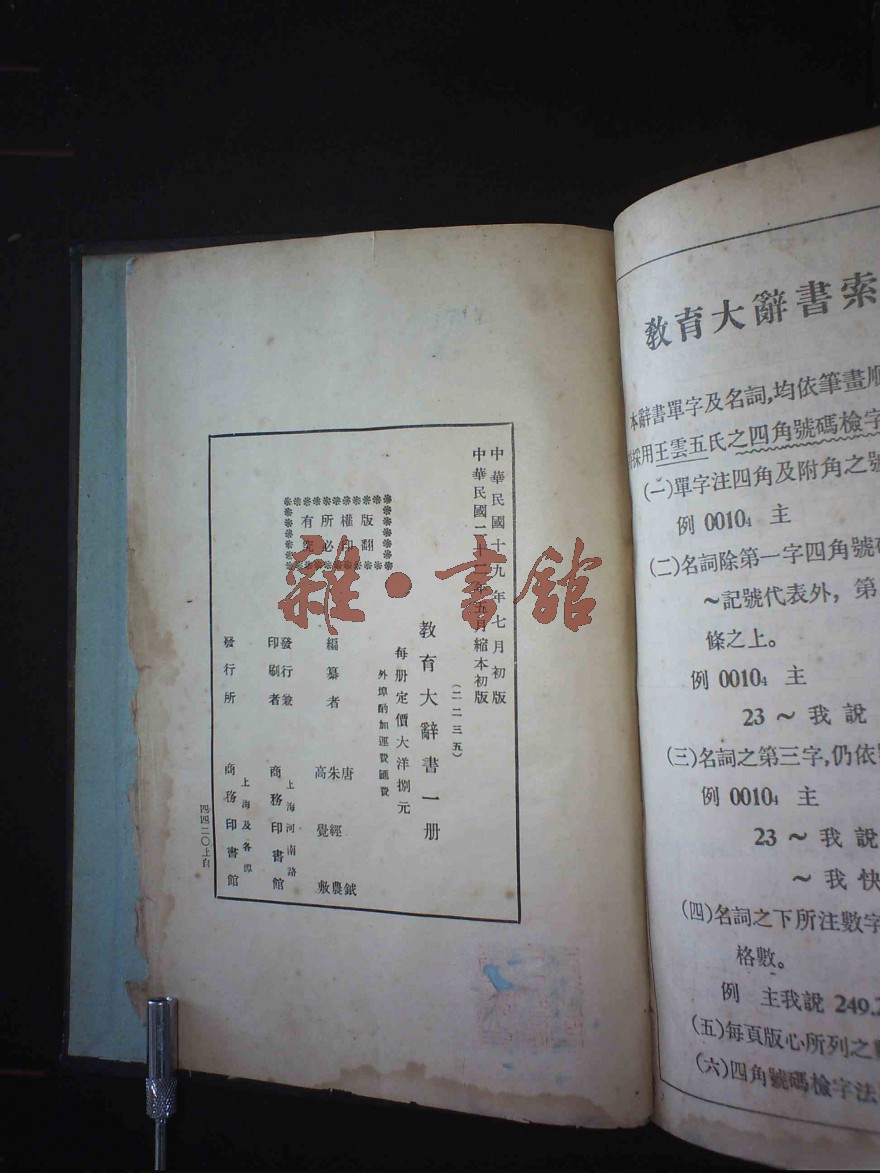 中華民國十九年七月初版
中華民國二十二年五月縮本初版
(二二三五)
教育大辭書一册
每册定價大洋捌元
外埠酌加運費匯費
版權所有
翻印必究
編纂者
唐鉞
朱經農
高覺敷
發行兼印刷者
上海河南路
商務印書館
發行所
上海及各埠
商務印書館
四四二〇上自
雜·書館
教育大辭書索
本辭書單字及名詞,均依筆畫順
採用王雲五氏之四角號碼檢字
(一)單字注四角及附角之號
例 0010₄ 主
(二)名詞除第一字四角號碼
~記號代表外, 第
條之上。
例 0010₄ 主
23 ~ 我 說
(三)名詞之第三字,仍依
例 0010₄ 主
23 ~ 我 說
~ 我 快
(四)名詞之下所注數字
格數。
例 主我說 249.2
(五)每頁版心所列之
(六)四角號碼檢字法